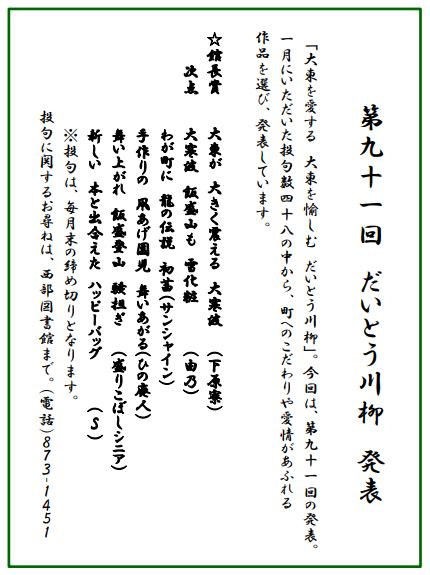 第九十一回 だいとう川柳 発表
「大東を愛する 大東を愉しむ だいとう川柳」。今回は、第九十一回の発表。
一月にいただいた投句数四十八の中から、町へのこだわりや愛情があふれる
作品を選び、発表しています。
☆館長賞 大東が 大きく震える 大寒波 (下原寮)
次点 大寒波 飯盛山も 雪化粧 (由乃)
わが町に 龍の伝説 初笛(サンシャイン)
手作りの 凧あげ園児 舞いあがる(ひの廃人)
舞い上がれ 飯盛登山 鞍担ぎ (盛りこぼしシニア)
新しい 本と出合えた ハッピーバッグ (S)
※投句は、毎月末の締め切りとなります。
投句に関するお尋ねは、西部図書館まで。(電話)873-1451